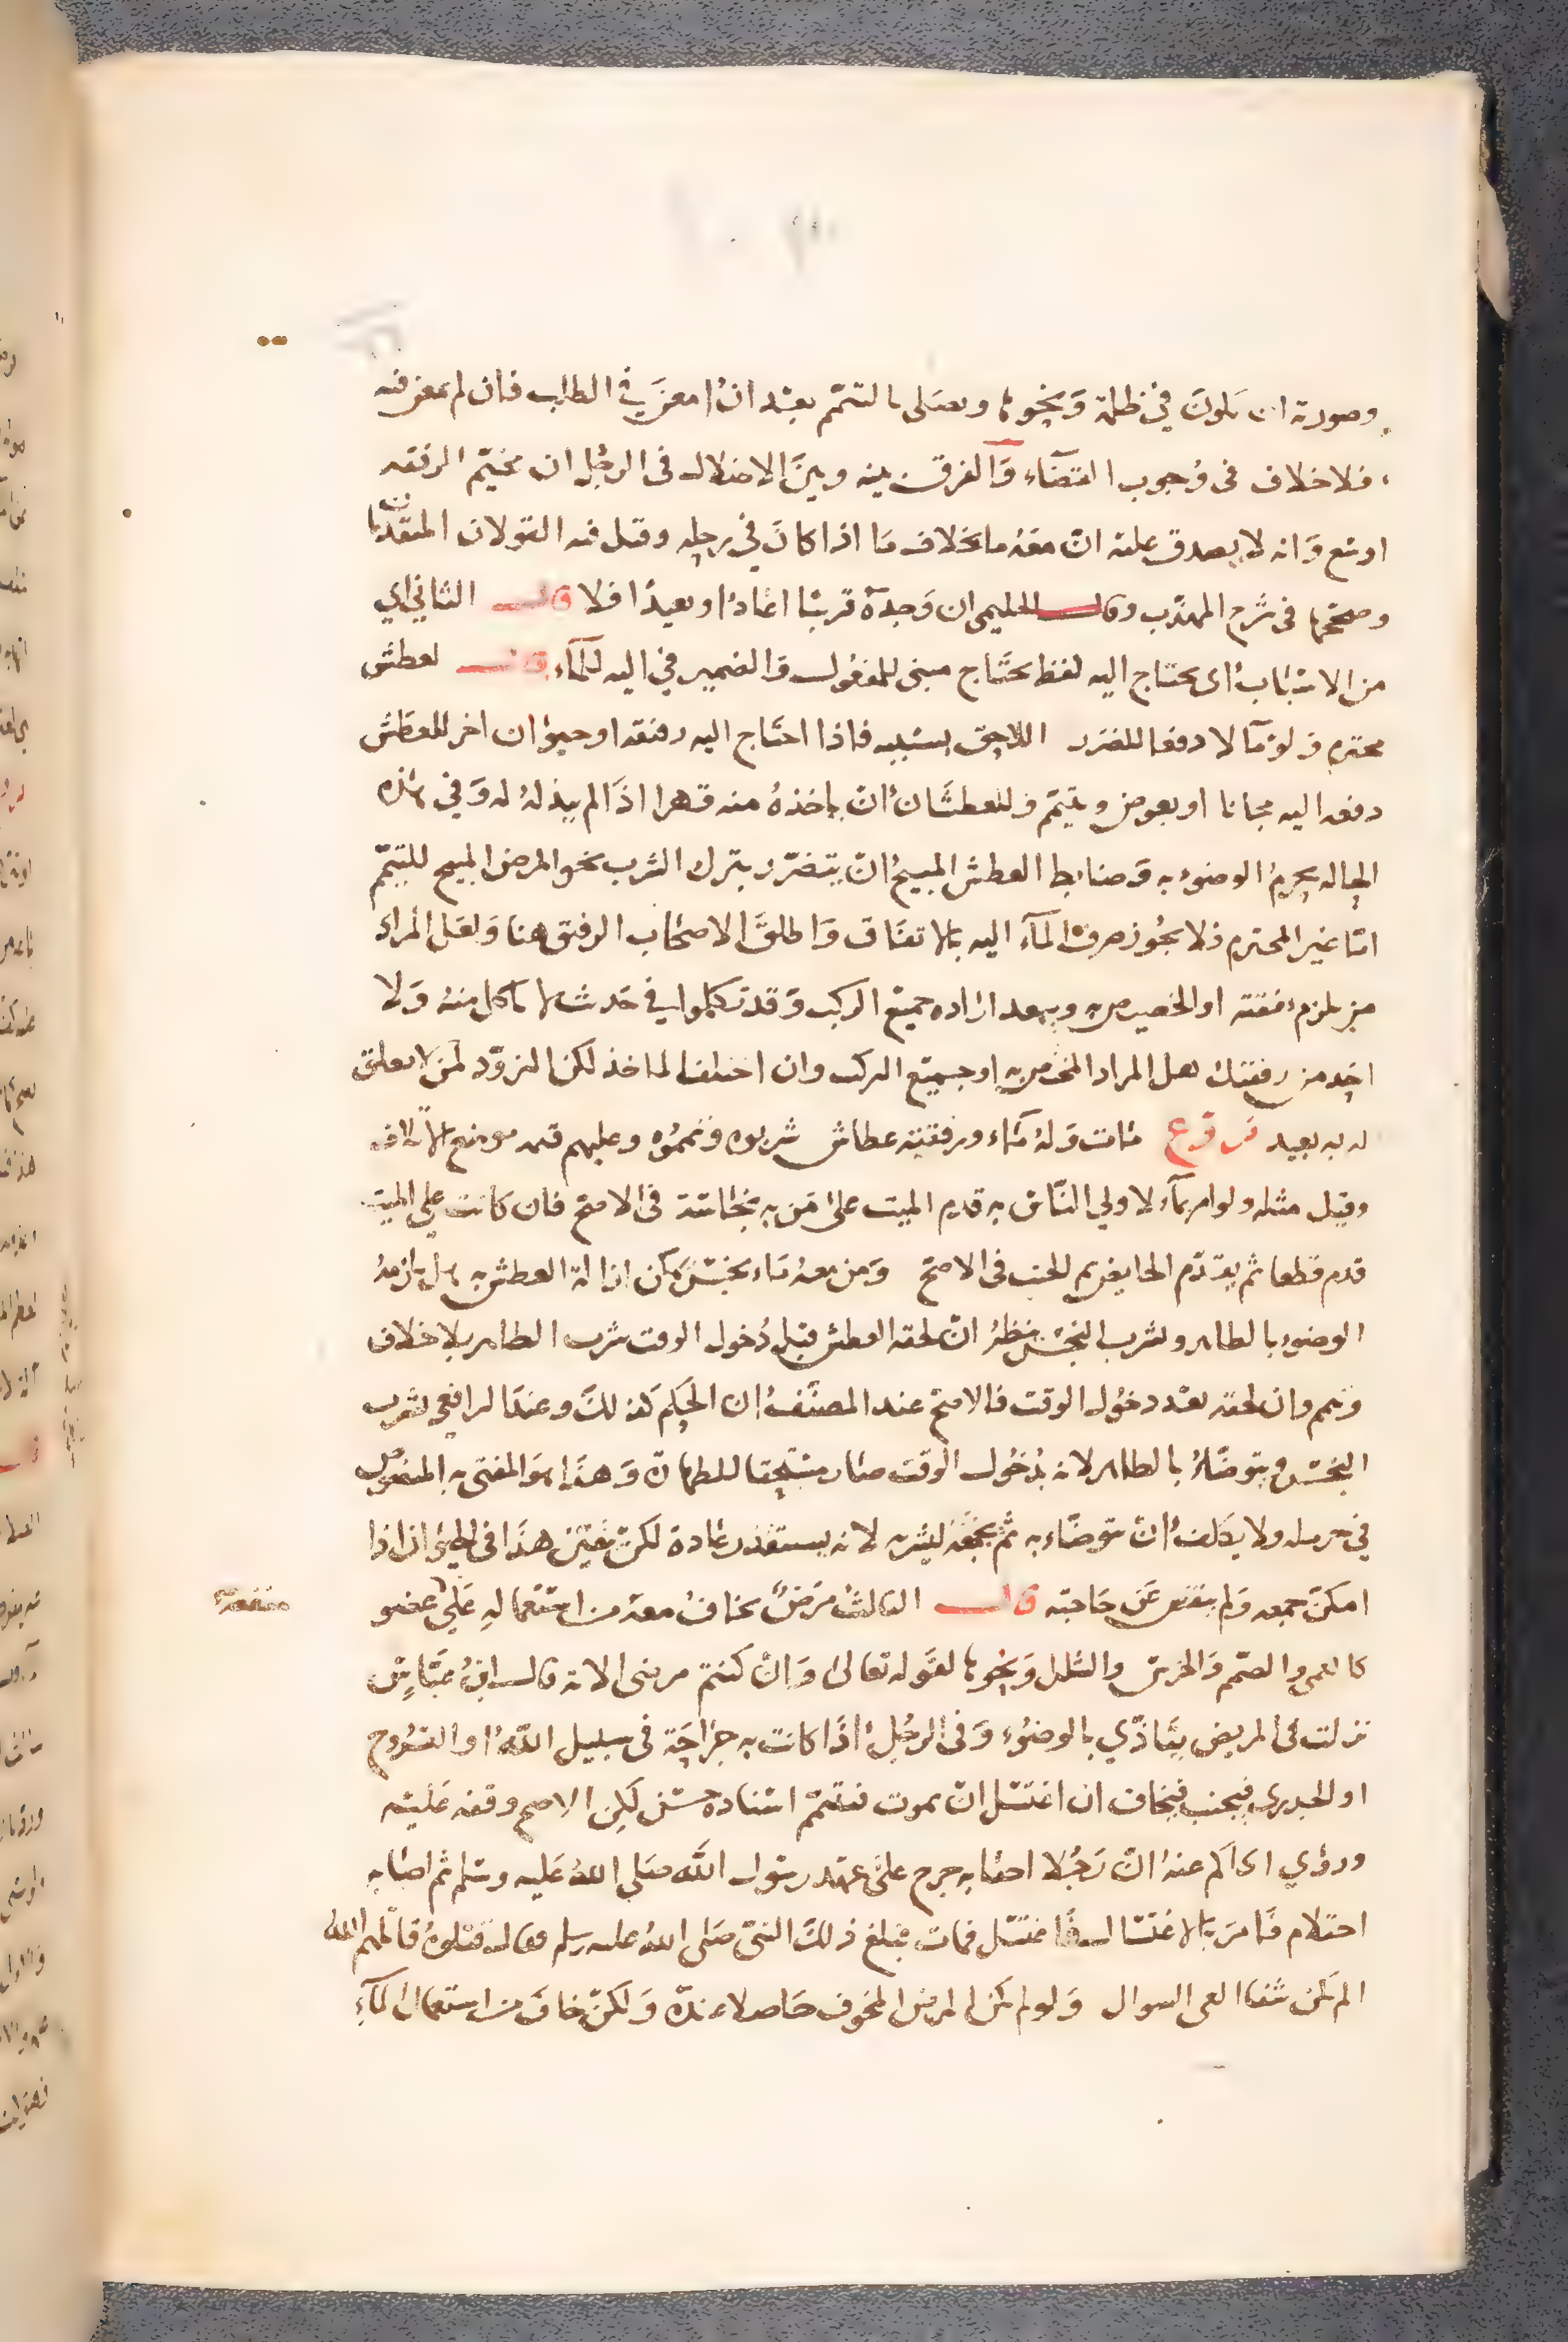 وصورته ان يكون في ظلمة ونحوها وصلى بالتيمم بعد ان امعن في الطلب فان لم يمعن فيه
فلا خلاف في وجوب القضاء والفرق بينه وبين الاضلال في الرحل ان مخيم الرفقه
اوسع وانه لا يصدق عليه ان معه ما بخلاف ما اذا كان في رحله وقيل فيه القولان المتقدمان
وصححها في شرح المهذب وقال الحليمى ان وجده قريبا اعاد او بعيدا فلا قال الثاني اي
من الاسباب ان يحتاج اليه لفظ يحتاج مبنى للمفعول والضمير في اليه للماء قال لعطش
محترم ولو مآلا دفعا للضرر اللاحق بسببه فاذا احتاج اليه رفقه او حيوان اخر للعطش
دفعه اليه مجانا او بعوض ويتيمم وللعطشان ان ياخذه منه قهرا اذا لم يبذله له وفي هذه
الحاله يحرم الوضوء به وضابط العطش المبيح ان يتضرر بترك الشرب نحو المرض المبيح للتيمم
اما غير المحترم فلا يجوز صرف الماء اليه بالاتفاق واطلق الاصحاب الرفيق هنا ولعل المراد
من يلزمه نفقته او المخصوص به ويبعد ارادة جميع الركب وقد تكلموا في حدث لا ياكل منه ولا
احد من رفقتك هل المراد المختص به او جميع الركب وان اختلفا لماخذ لكن التزود لمن لا تعلق
له به بعيد فروع مات وله ماء ورفقته عطاش شربوه ويمموه وعليهم قيمه موضع الاتلاف
وقيل مثله ولو امر بماء لاولي الناس به قدم الميت على من به نجاسة في الاصح فان كانت علي الميت
قدم قطعا ثم يقدم الحايض ثم الجنب في الاصح ومن معه ماء نجس يمكن ازالة العطش به هل يلزمه
الوضوء بالطاهر وشرب النجس ينظر ان لحقه العطش قبل دخول الوقت شرب الطاهر بلا خلاف
وتيمم وان لحقه بعد دخول الوقت فالاصح عند المصنف ان الحكم كذلك وعند الرافعي يشرب
النجس ويتوضا بالطاهر لانه بدخول الوقت صار مستحقا للطهارة وهذا هو المفتى به المنقول
في حرمله ولا يكلف ان يتوضاء به ثم يجمعه ليشربه لانه يستقذر عادة لكن يتعين هذا في الحيوان اذا
امكن جمعه ولم ينقص عن حاجته قال الثالث مرض يخاف معه من استعماله على منفعة عضو
كالعمى والصمم والخرس والشلل ونحوها لقوله تعالى وان كنتم مرضى الاية قال ابن عباس
نزلت في المريض يتاذي بالوضوء وفي الرجل اذا كانت به جراحة في سبيل الله او القروح
او الجدري فيجنب فيخاف ان اغتسل ان يموت فيتيمم اسناده حسن لكن الاصح وقفه عليه
وروي الحاكم عنه ان رجلا اصابه جرح على عهد رسول الله صلى الله عليه وسلم ثم اصابه
احتلام فامر بالاغتسال فاغتسل فمات فبلغ ذلك النبي صلى الله عليه وسلم فقال قتلوه قاتلهم الله
الم يكن شفا العى السوال ولو لم يكن المرض المخوف حاصلا عنده ولكن خاف من استعمال الماء